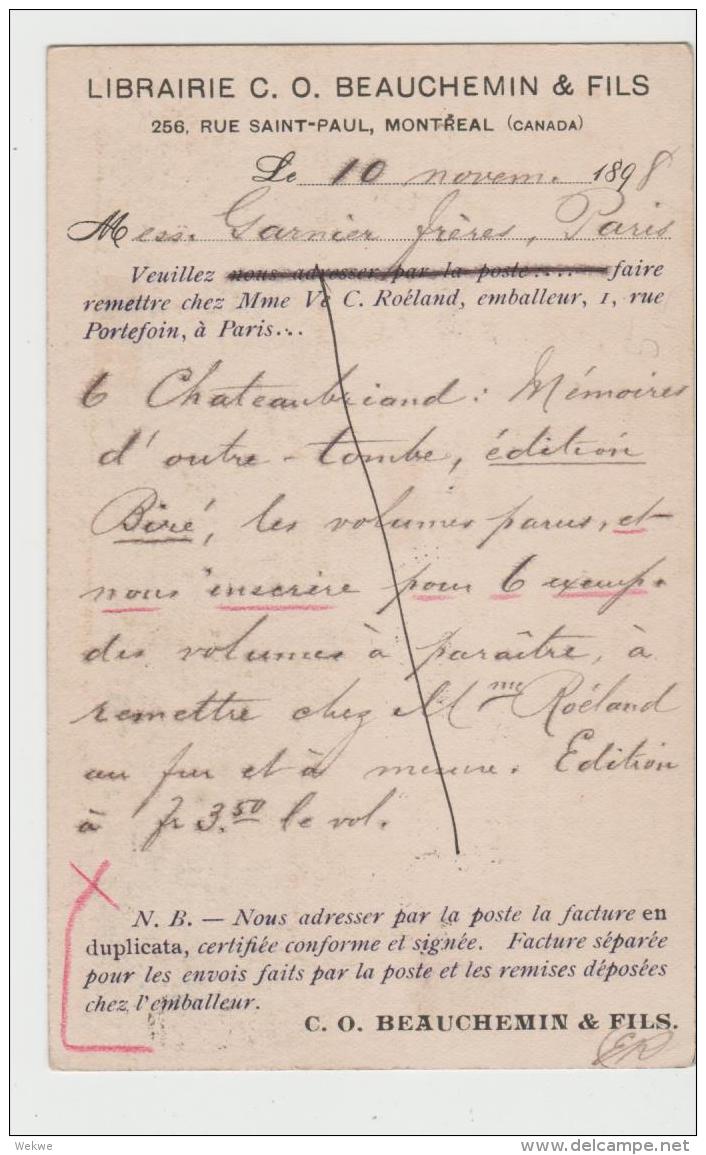 LIBRAIRIE C. O. BEAUCHEMIN & FILS
256, RUE SAINT-PAUL, MONTREAL (CANADA)
Le 10 novem. 1898
Mess. Garnier frères, Paris
Veuillez nous adresser par la poste.... faire
remettre chez Mme Ve C. Roéland, emballeur, 1, rue
Portefoin, à Paris...
6 Chateaubriand : Mémoires
d'outre-tombe, édition
Biré, les volumes parus, et
nous inscrire pour 6 exemp.
des volumes à paraître, à
remettre chez Mme Roéland
au fur et à mesure. Edition
à fr 3.50 le vol.
N. B. — Nous adresser par la poste la facture en
duplicata, certifiée conforme et signée. Facture séparée
pour les envois faits par la poste et les remises déposées
chez l'emballeur.
C. O. BEAUCHEMIN & FILS.
Wekwe
© delcampe.net